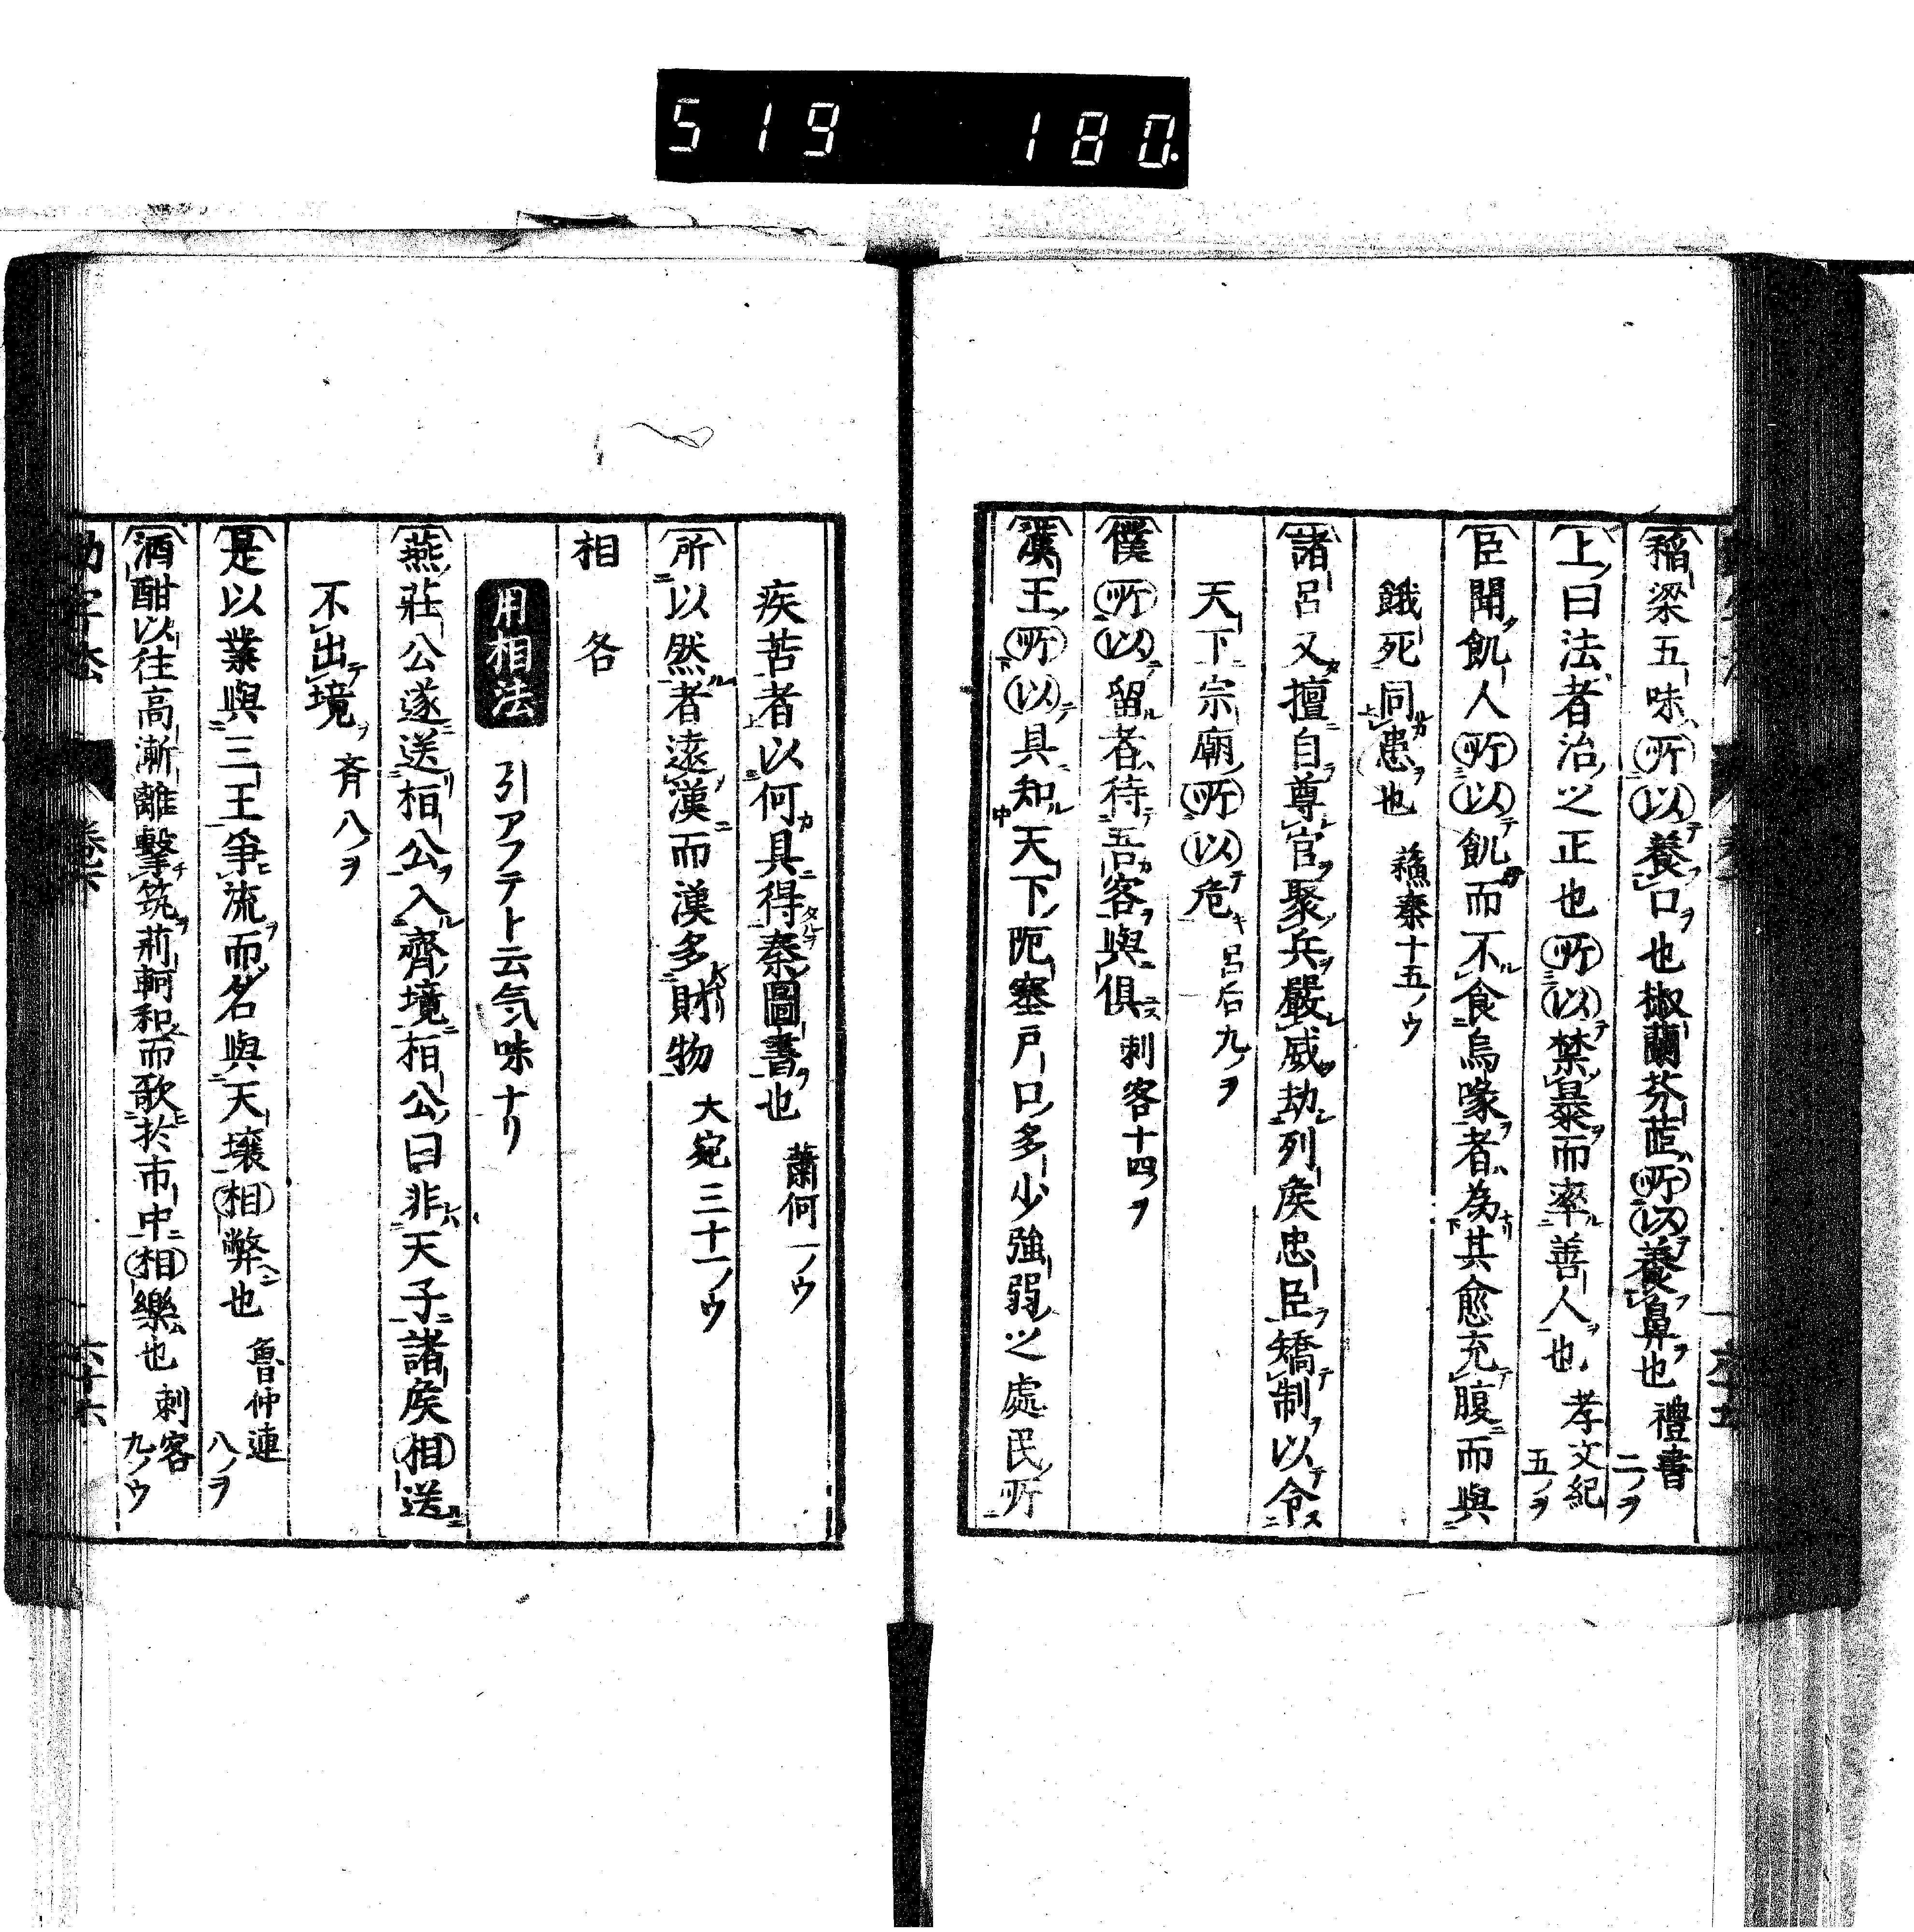 519 180.
稻梁五味所以養口也椒蘭芬茝所以養鼻也 禮書二ノヲ
上曰法者治之正也所以禁暴而率善人也 孝文紀五ノヲ
臣聞飢人所以飢而不食烏喙者為其愈充腹而與
餓死同患也 蘓秦十五ノウ
諸呂又擅自尊官聚兵嚴威劫列矦忠臣矯制以令
天下宗廟所以危 呂后九ノヲ
僕所以留者待吾客與俱 刺客十四ノヲ
漢王所以具知天下阨塞戸口多少強弱之處民所
疾苦者以何具得秦圖書也 蕭何一ノウ
所以然者遠漢而漢多財物 大宛三十一ノウ
相 各
用相法 引アフテト云気味ナリ
燕莊公遂送桓公入齊境桓公曰非天子諸矦相送
不出境 斉八ノヲ
是以業與三王爭流而名與天壤相弊也 魯仲連八ノヲ
酒酣以徃高漸離擊筑荊軻和而歌於市中相樂也 刺客九ノウ
六十六